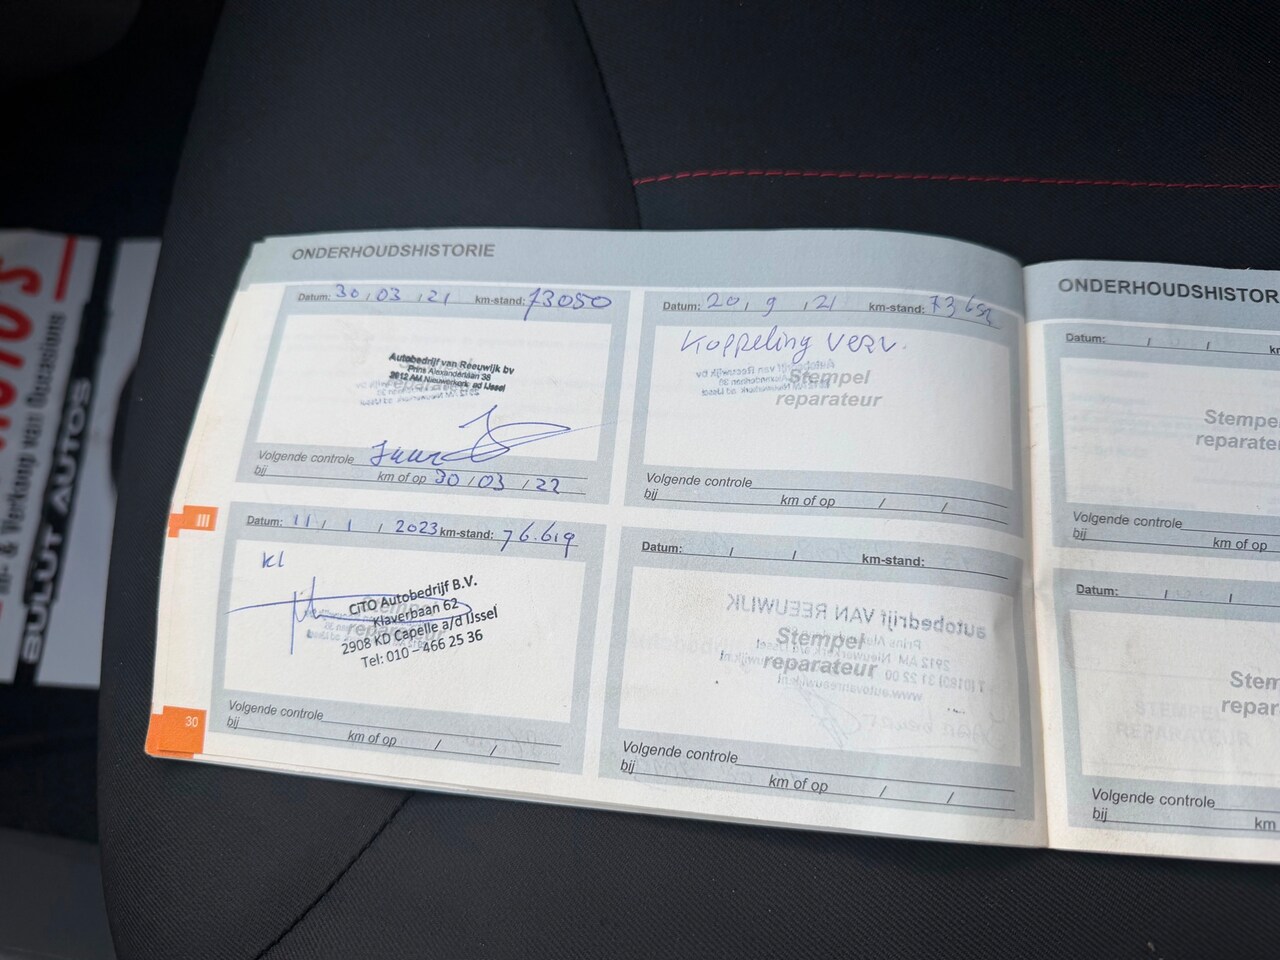 ONDERHOUDSHISTORIE
Datum: 30 / 03 / 21 km-stand: 73050
Autobedrijf van Reeuwijk bv
Prins Alexanderlaan 38
2912 AM Nieuwerkerk ad IJssel
Volgende controle
bij km of op 30 / 03 / 22
Datum: 20 / 9 / 21 km-stand:
Koppeling verv.
Stempel
reparateur
Volgende controle
bij km of op / /
Datum: 11 / 1 / 2023 km-stand: 76.619
kl
CITO Autobedrijf B.V.
Klaverbaan 62
2908 KD Capelle a/d IJssel
Tel: 010 – 466 25 36
Volgende controle
bij km of op / /
Datum: / / km-stand:
autobedrijf VAN REEUWIJK
Stempel
reparateur
Volgende controle
bij km of op / /
III
30
ONDERHOUDSHISTOR
Datum: / /
Stempe
reparate
Volgende controle
bij km of op
Datum: / /
Stem
repara
STEMPEL
REPARATEUR
Volgende controle
bij km
& Verkoop van Occasions
BULUT AUTOS